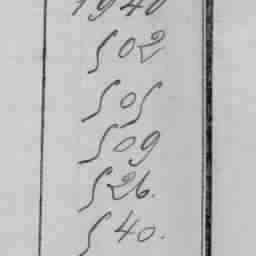 1940
502
505
509
526.
540.